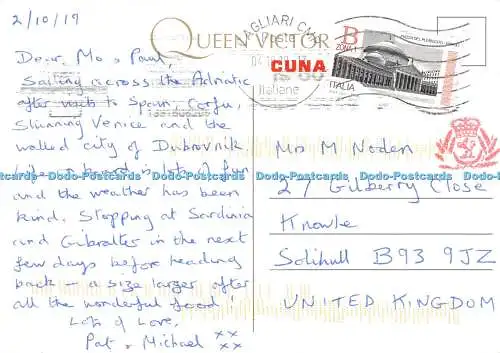 2/10/19
QUEEN VICTOR
CUNA
Poste
Italiane
B
ZONA 1
ITALIA
Dear Mo & Paul,
Sailing across the Adriatic
after visits to Spain, Corfu,
Stunning Venice and the
walled city of Dubrovnik.
Life on board is lots of fun
and the weather has been
kind. Stopping at Sardinia
and Gibraltar in the next
few days before heading
back – a size larger after
all the wonderful food!
Lots of love,
Pat & Michael xx
xx
Mrs M Noden
27 Gilberry Close
Knowle
Solihull B93 9JZ
UNITED KINGDOM
Dodo-Postcards Dodo-Postcards Dodo-Postcards Dodo-Postcards Dodo-Postcards Dodo-Postcards